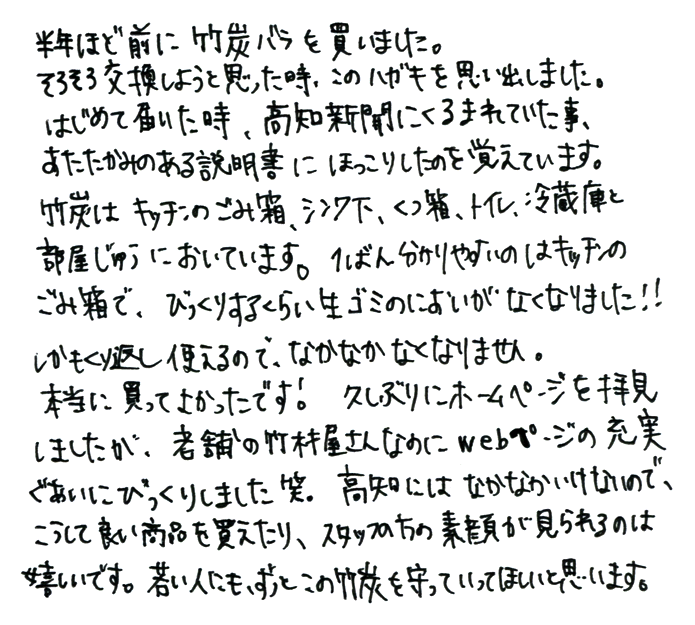 半年ほど前に竹炭バラを買いました。
そろそろ交換しようと思った時、このハガキを思い出しました。
はじめて届いた時、高知新聞にくるまれていた事、
あたたかみのある説明書にほっこりしたのを覚えています。
竹炭はキッチンのごみ箱、シンク下、くつ箱、トイレ、冷蔵庫と
部屋じゅうにおいています。1ばん分かりやすいのはキッチンの
ごみ箱で、びっくりするくらい生ゴミのにおいがなくなりました!!
しかもくり返し使えるので、なかなかなくなりません。
本当に買ってよかったです! 久しぶりにホームページを拝見
しましたが、老舗の竹材屋さんなのにwebページの充実
ぐあいにびっくりしました笑。高知にはなかなかいけないので、
こうして良い商品を買えたり、スタッフの方の素顔が見られるのは
嬉しいです。若い人にも、ずっとこの竹炭を守っていってほしいと思います。